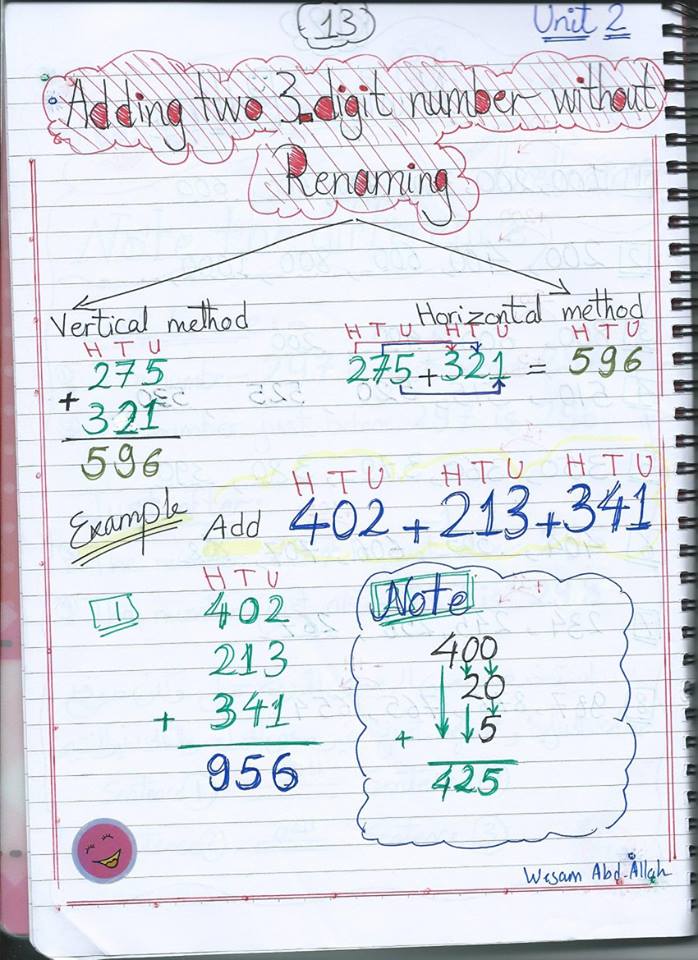 13
Unit 2
Adding two 3-digit number without
Renaming
Vertical method
H T U
275
+
321
596
Horizontal method
H T U H T U H T U
275 + 321 = 596
Example Add
H T U H T U H T U
402 + 213 + 341
1
H T U
402
213
+ 341
956
Note
400
20
+ 5
425
Wesam Abd-Allah